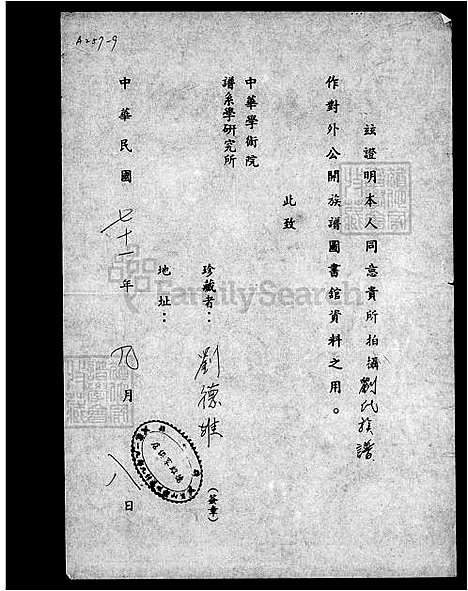 A257-9
茲證明本人同意貴所拍攝劉氏族譜
作對外公開族譜圖書館資料之用。
此致
中華學術院
譜系學研究所
珍藏者：劉德雄（簽章）
地址：
中華民國七十一年九月八日
FamilySearch